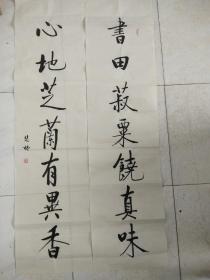 書田菽粟饒真味
心地芝蘭有異香